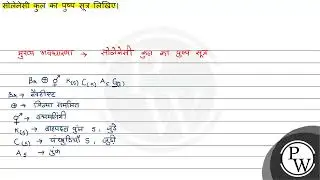 सोलेनेसी कुल का पुष्प सूत्र लिखिए।
मुख्य अवधारणा → सोलेनेसी कुल का पुष्प सूत्र
Br ⊕ ⚥ K(5) C(5) A5 G(2)
Br →
⊕ → त्रिज्या सममित
⚥ → उभयलिंगी
K(5) → बाह्यदल पुंज 5, जुड़े
C(5) → पंखुड़ियाँ 5, जुड़ी
A5 → पुंकेसर
PW